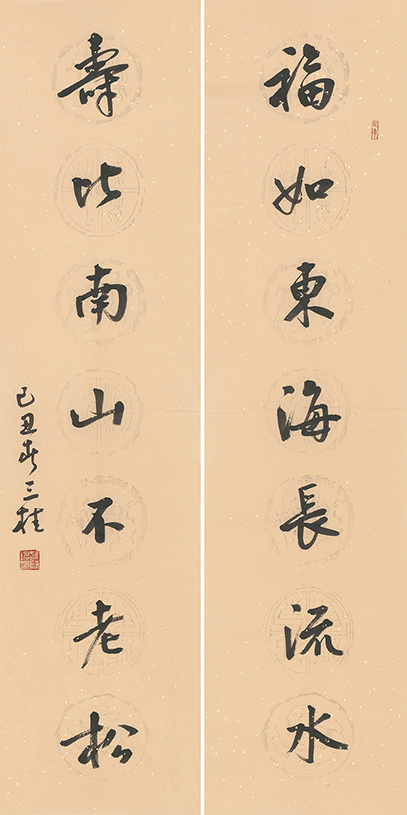 福如東海長流水
壽比南山不老松
己丑春三桂